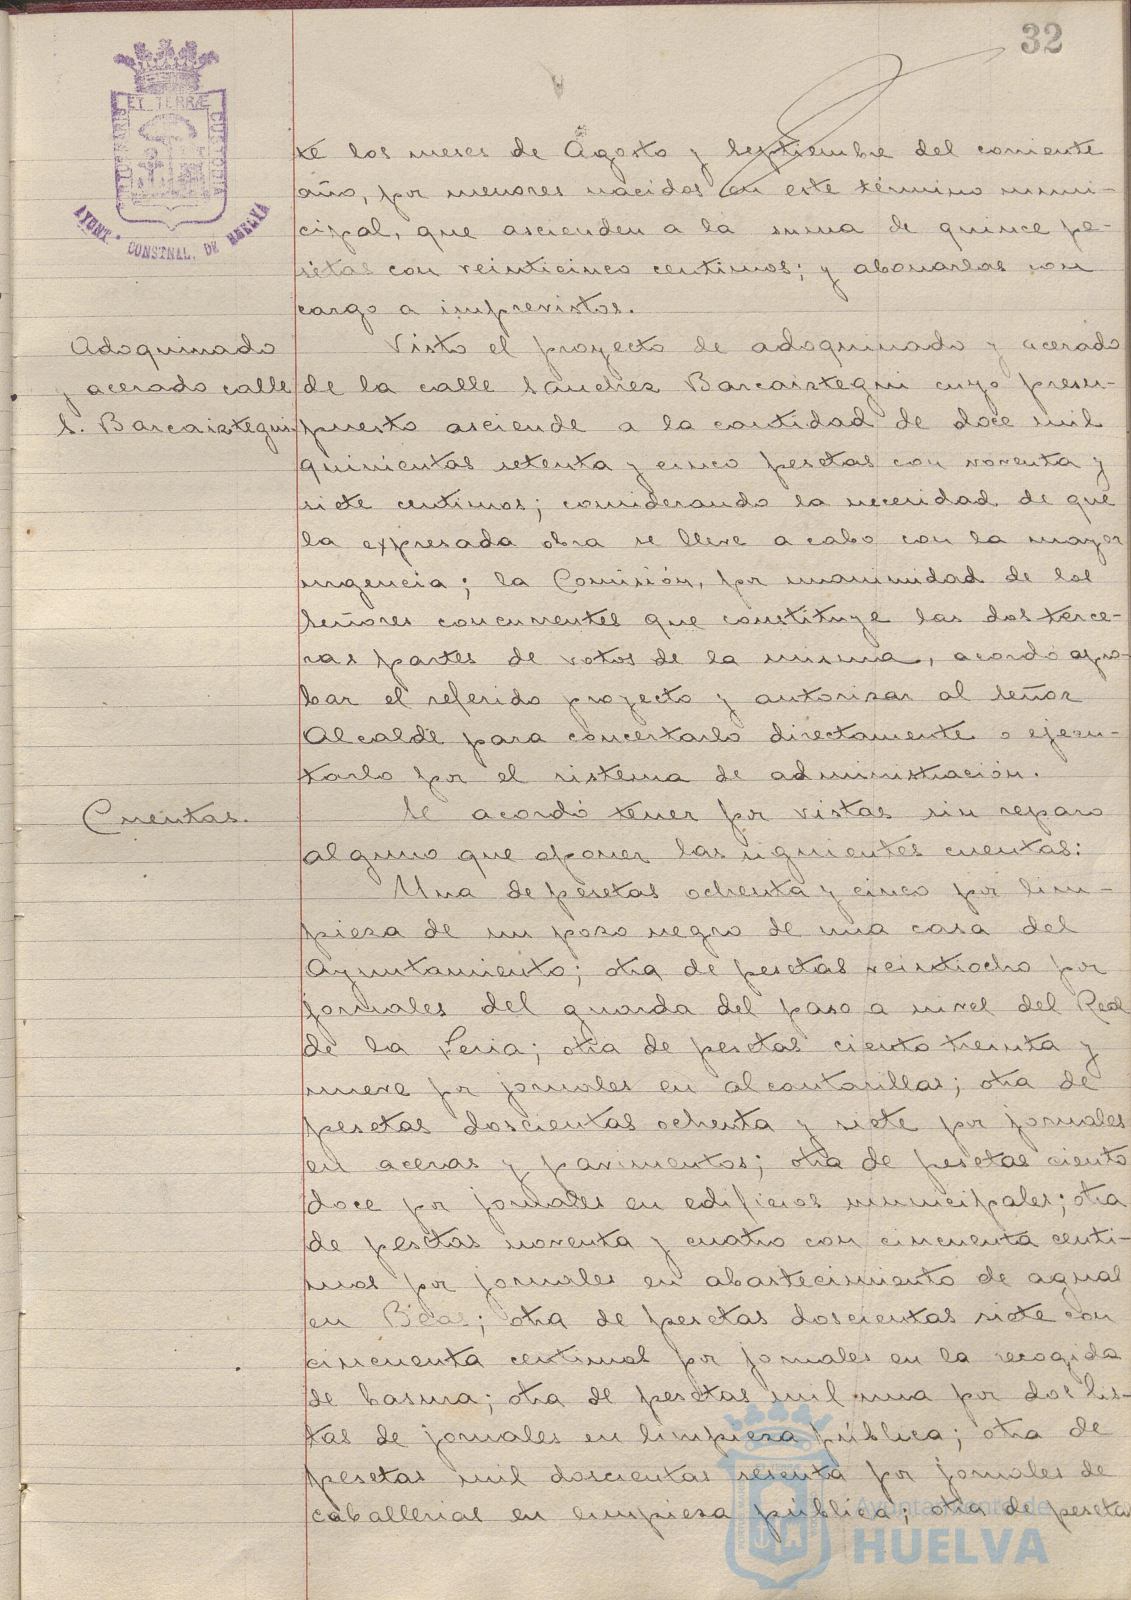 32
ET TERRÆ
CUSTODIA
AYUNT. CONSTNAL. DE HUELVA
te los meses de Agosto y Septiembre del corriente
año, por menores nacidos en este término muni-
cipal, que ascienden a la suma de quince pe-
setas con veinticinco centimos; y abonarlas con
cargo a imprevistos.
Adoquinado
y acerado calle
S. Barcaiztegui.
Visto el proyecto de adoquinado y acerado
de la calle Sanchez Barcaiztegui cuyo presu-
puesto asciende a la cantidad de doce mil
quinientas setenta y cinco pesetas con noventa y
siete centimos; considerando la necesidad de que
la expresada obra se lleve a cabo con la mayor
urgencia; la Comisión, por unanimidad de los
Señores concurrentes que constituye las dos terce-
ras partes de votos de la misma, acordó apro-
bar el referido proyecto y autorizar al Señor
Alcalde para concertarlo directamente o ejecu-
tarlo por el sistema de administración.
Cuentas.
Se acordó tener por vistas sin reparo
alguno que oponer las siguientes cuentas:
Una de pesetas ochenta y cinco por lim-
pieza de un pozo negro de una casa del
Ayuntamiento; otra de pesetas veintiocho por
jornales del guarda del paso a nivel del Real
de la Feria; otra de pesetas ciento treinta y
nueve por jornales en alcantarillas; otra de
pesetas doscientas ochenta y siete por jornales
en aceras y pavimentos; otra de pesetas ciento
doce por jornales en edificios municipales; otra
de pesetas noventa y cuatro con cincuenta centi-
mos por jornales en abastecimiento de aguas
en Beas; otra de pesetas doscientas siete con
cincuenta centimos por jornales en la recogida
de basura; otra de pesetas mil una por dos lis-
tas de jornales en limpieza pública; otra de
pesetas mil doscientas sesenta por jornales de
caballerias en limpieza pública; otra de pesetas
Ayuntamiento de
HUELVA